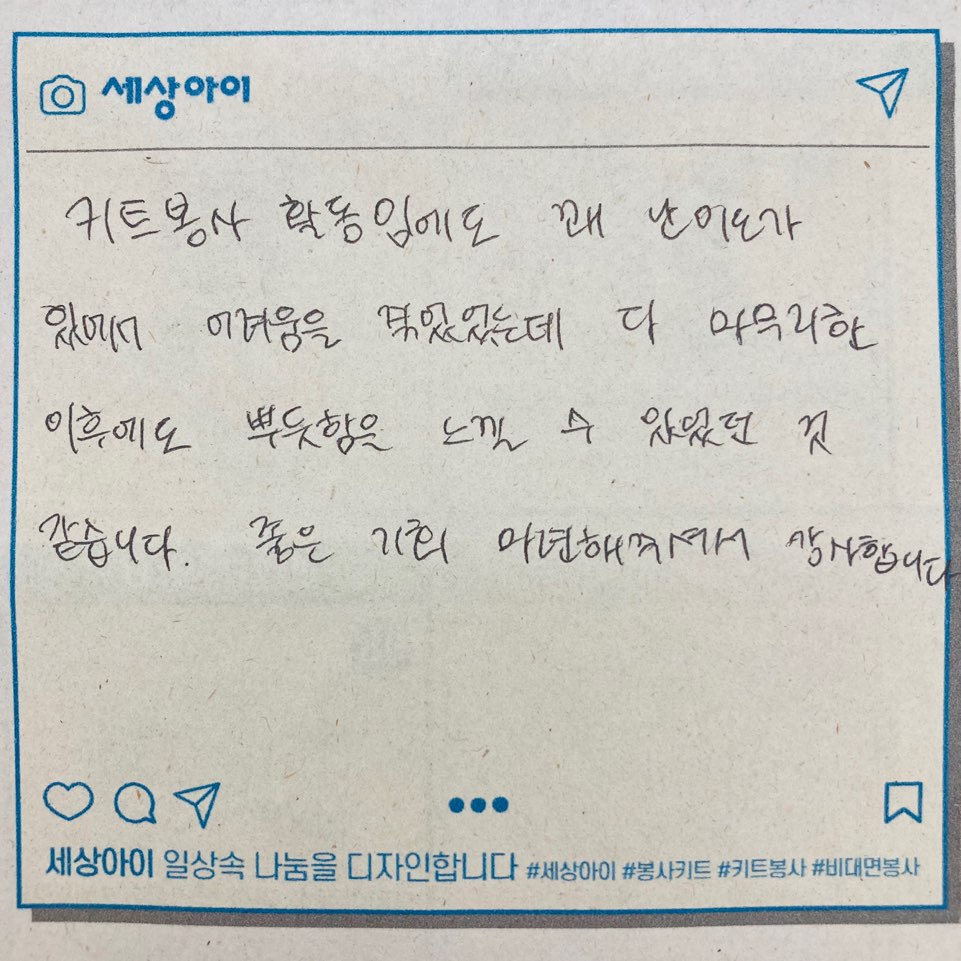 세상아이
키트봉사 활동임에도 꽤 난이도가
있에서 어려움을 겪었었는데 다 마무리한
이후에도 뿌듯함을 느낄 수 있었던 것
같습니다. 좋은 기회 마련해주셔서 감사합니다
세상아이 일상속 나눔을 디자인합니다 #세상아이 #봉사키트 #키트봉사 #비대면봉사